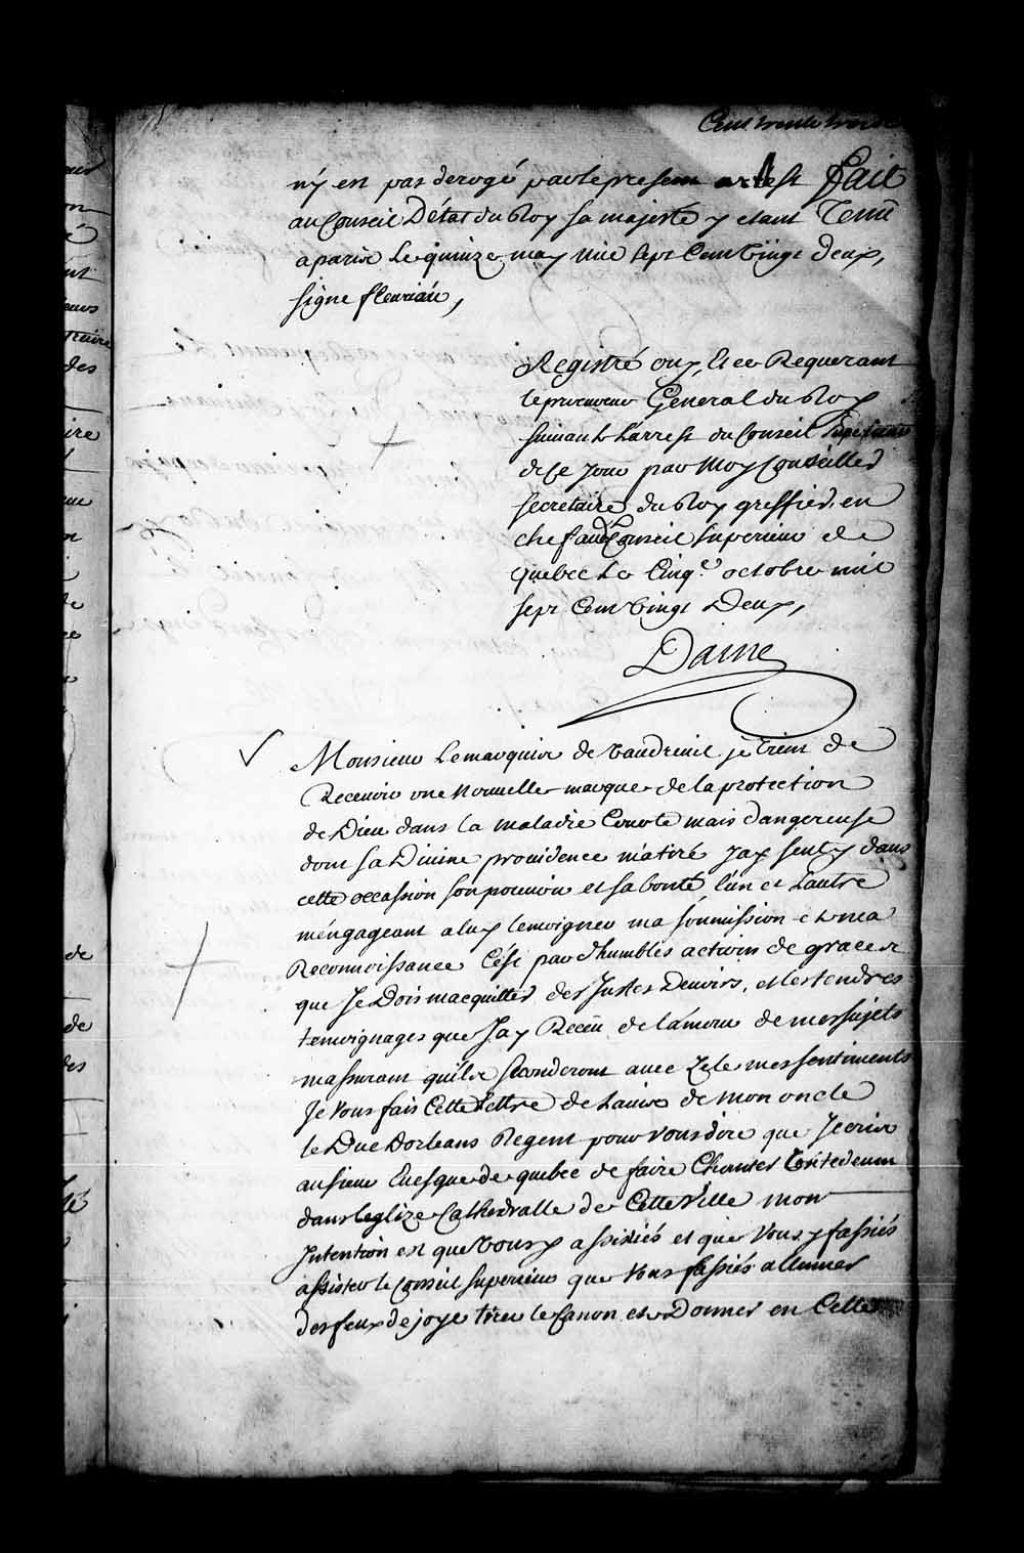 Cent trente trois
n'y est pas derogé par le present arrest fait
au Conseil D'état du Roy sa majesté y etant Tenu
a paris Le quinze may mil sept Cent vingt deux,
signé fleuriau,
Registré ouy, et ce Requerant
le procureur General du Roy
suivant L'arrest du Conseil Superieur
de Ce jour par Moy Conseiller
secretaire du Roy greffier en
chef aud. Conseil superieur de
Quebec Le Cinq.e octobre mil
sept Cent vingt Deux,
Daine
Monsieur Le marquis de Vaudreuil je viens de
Recevoir une Nouvelle marque de la protection
de Dieu dans la maladie Courte mais dangereuse
dont sa Divine providence m'a tiré Jay senty dans
cette occassion son pouvoir et sa bonté l'un et L'autre
m'engageant a luy temoigner ma soumission et ma
Reconnoissance C'est par d'humbles actions de graces
que Je Dois macquitter des Justes Devoirs, et les tendres
temoignages que Jay Receu de l'amour de mes sujets
massurant quils seconderont avec Zele mes sentiments
Je Vous fais Cette Lettre de Lavis de mon oncle
le Duc Dorleans Regent pour vous dire que Jecris
au sieur Evesque de quebec de faire Chanter le tedeum
dans leglize Cathedralle de Cette Ville mon
Intention est que vous y assistiés et que Vous y fassiés
assister le Conseil superieur que Vous fassiés allumer
des feux de joye tirer le Canon et Donner en Cette